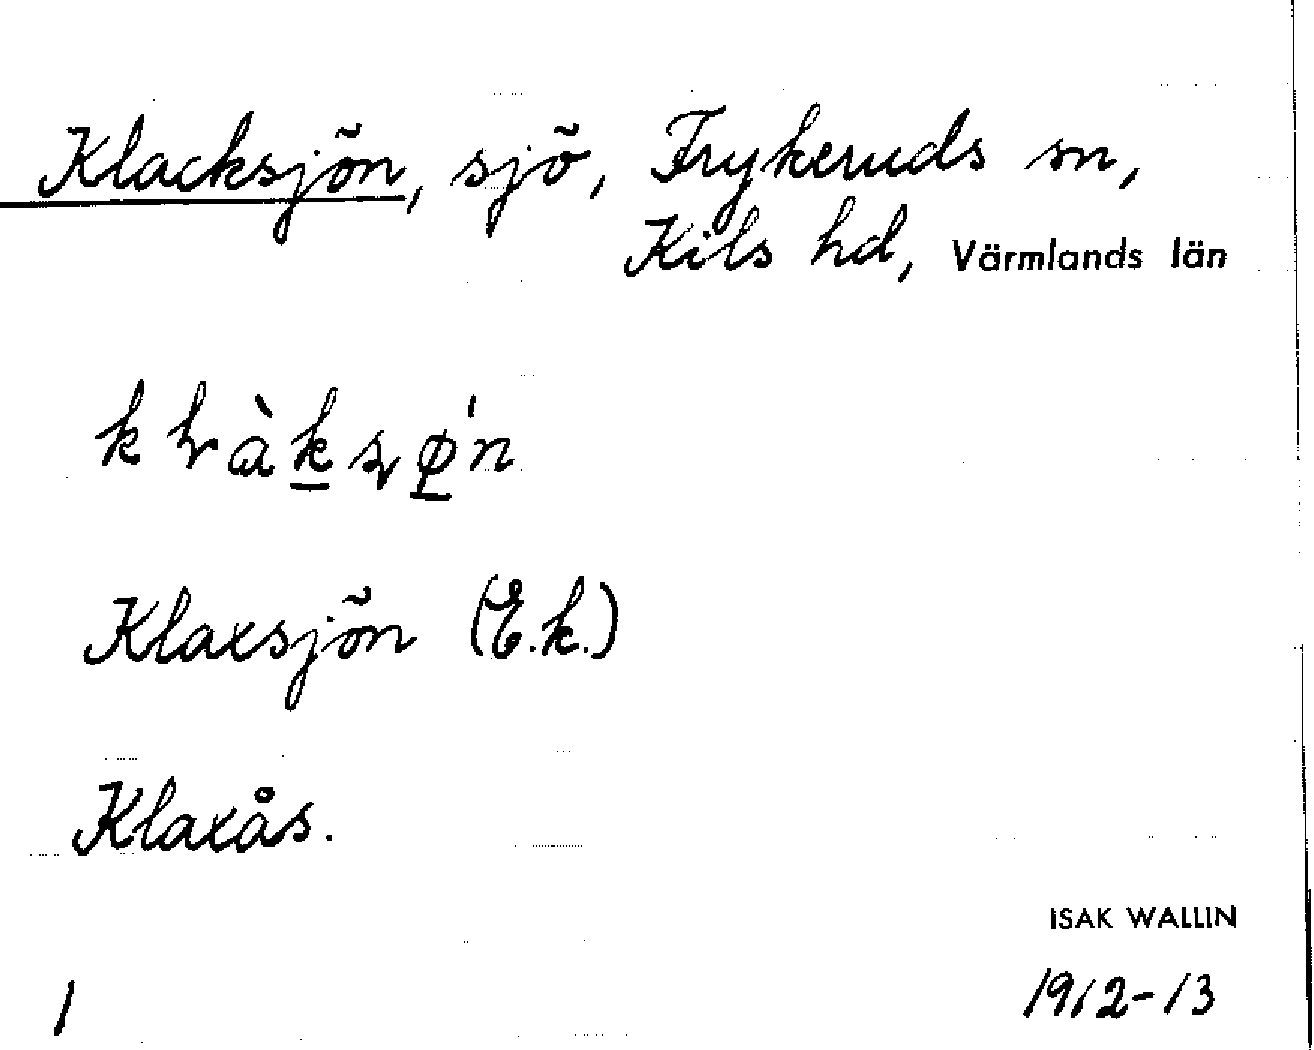 Klacksjön, sjö, Frykeruds sn,
Kils hd, Värmlands län
Klaxsjön (E.k.)
Klaxås.
ISAK WALLIN
1912-13
1